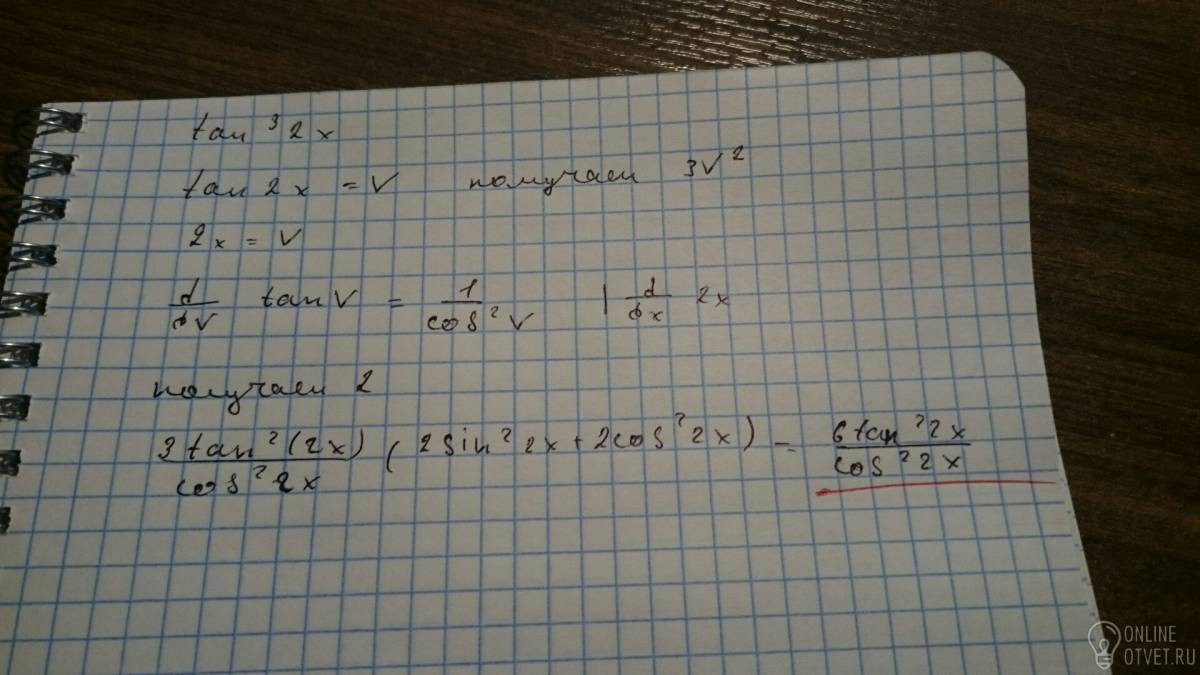 tan³ 2x
tan 2x = V получаем 3V²
2x = V
d/dV tan V = 1/cos² V | d/dx 2x
получаем 2
3tan²(2x)/cos² 2x (2sin² 2x + 2cos² 2x) = 6tan² 2x/cos² 2x
ONLINE
OTVET.RU